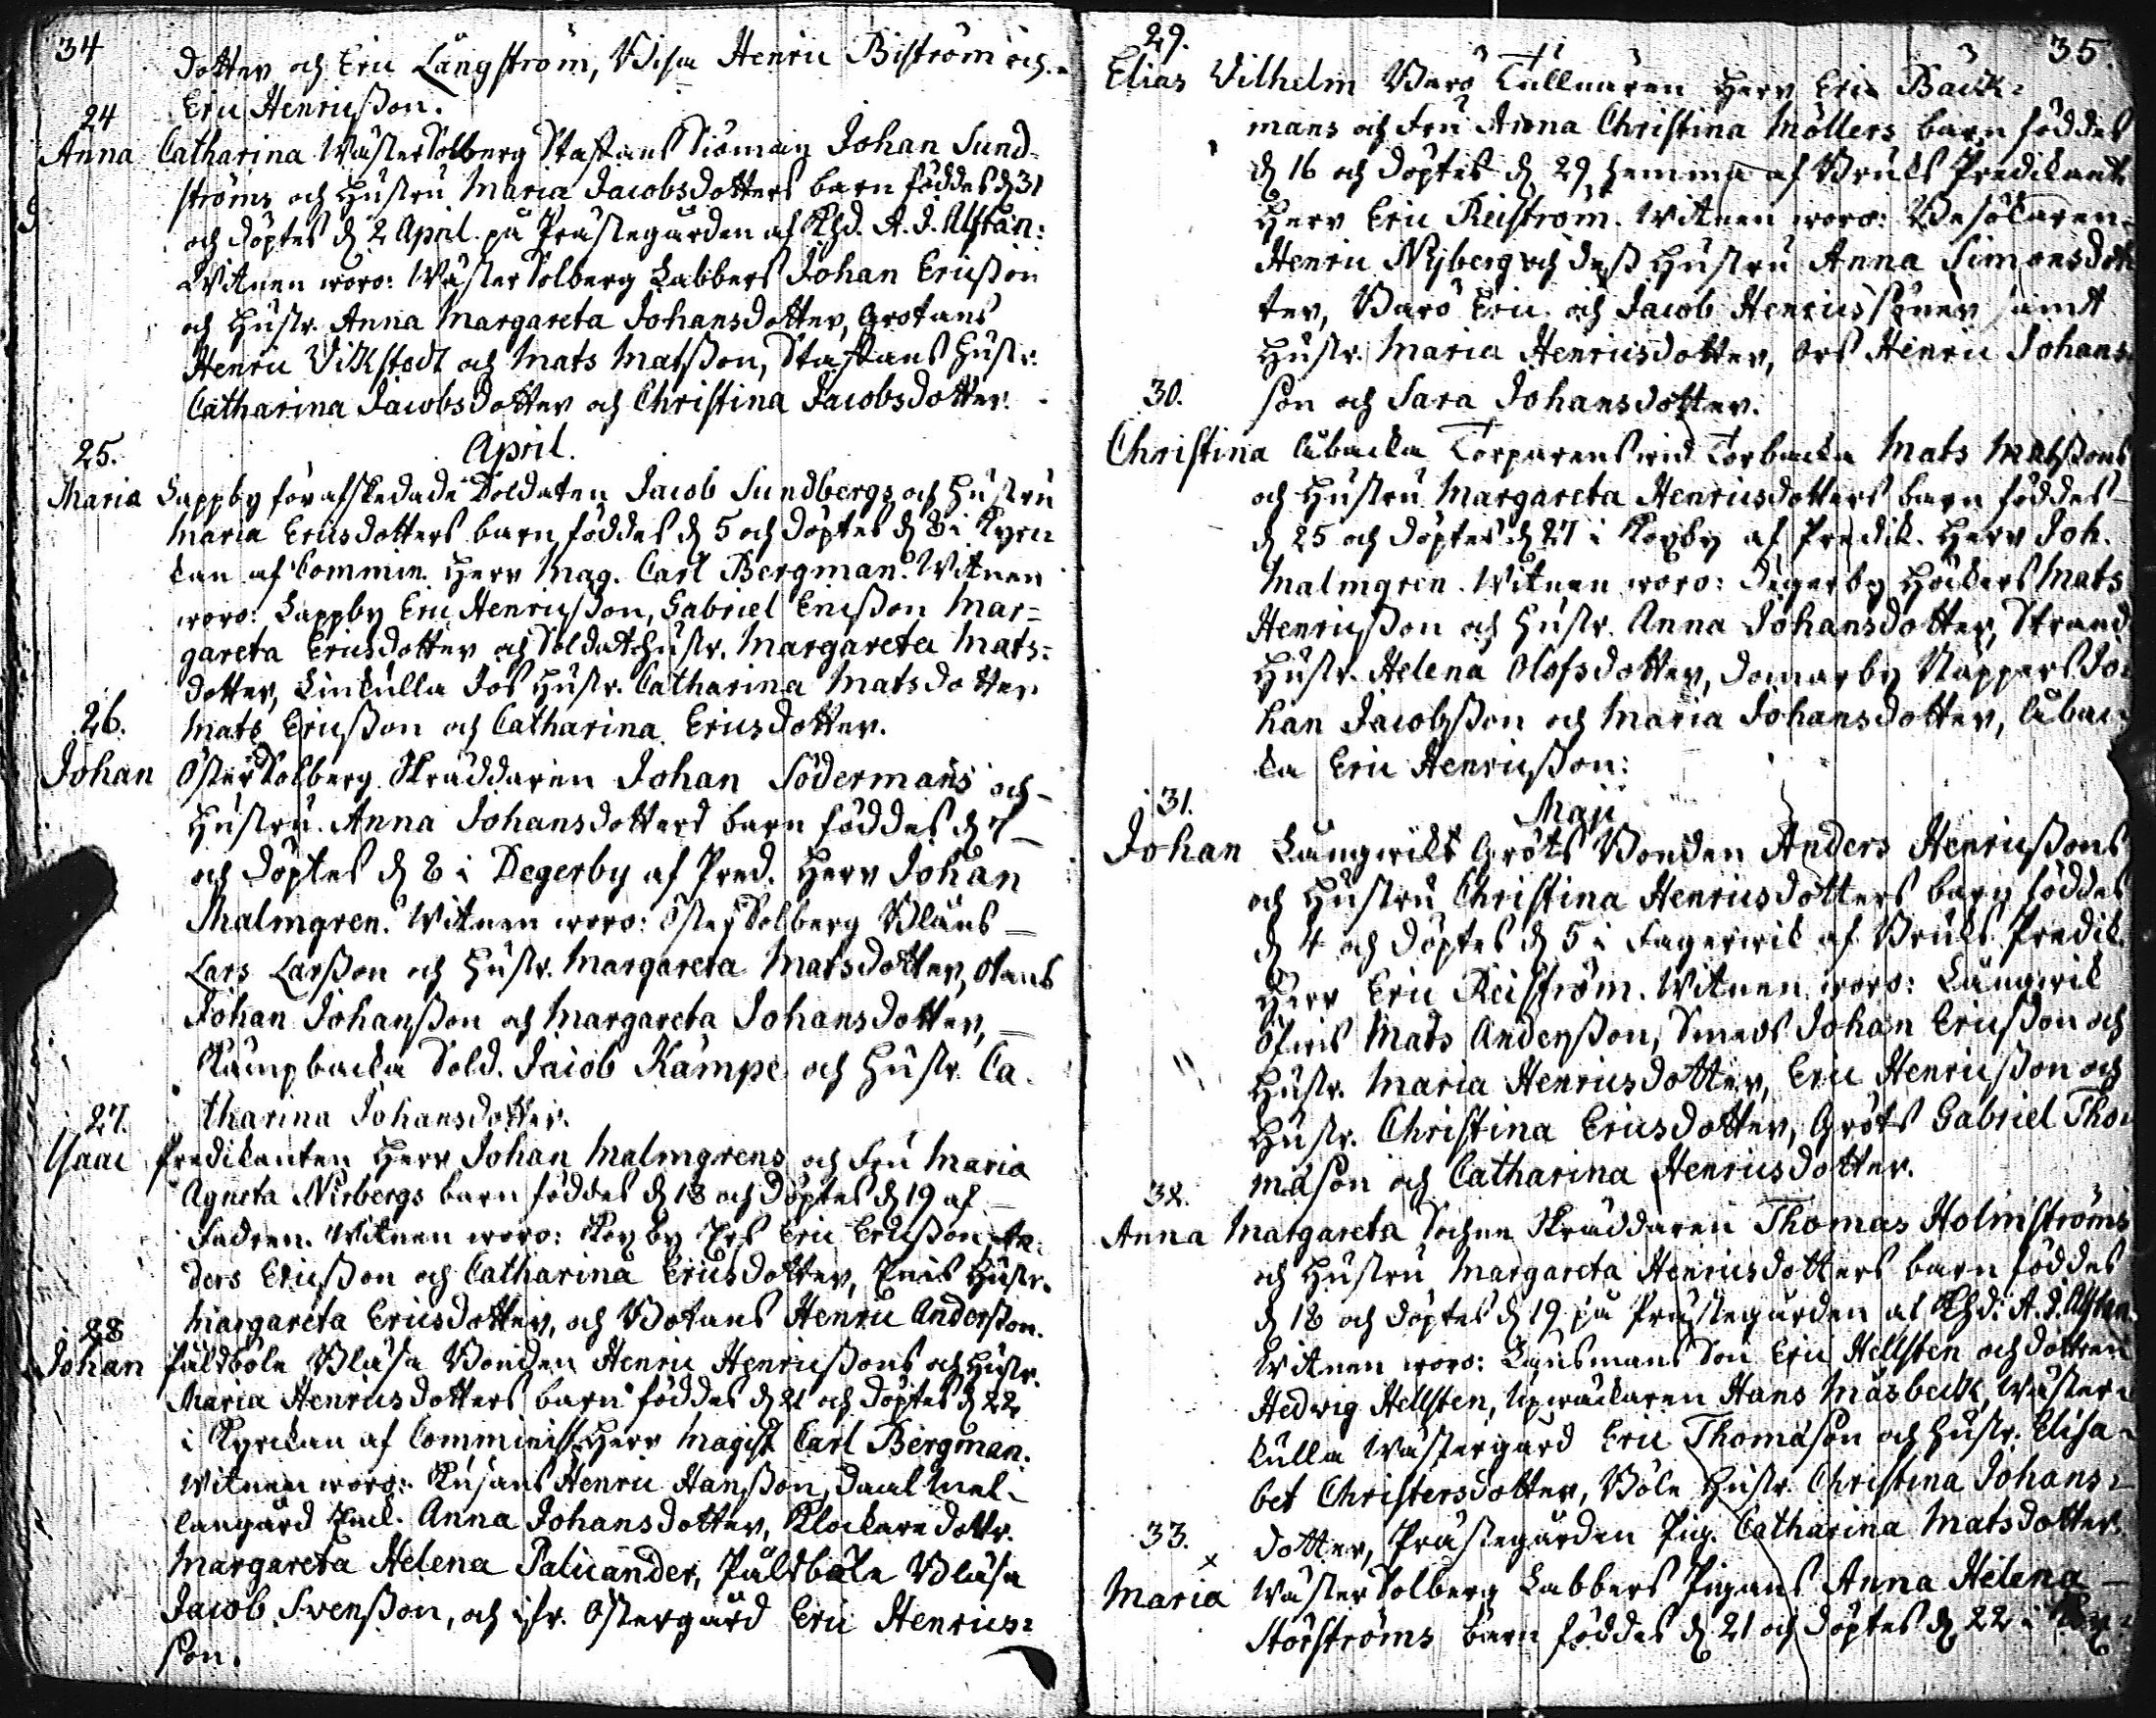 34
dotter och Eric Långström, Visa Henric Biström och
Eric Henricsson.
24
Anna Catharina WästerSolberg Staffans Siöman Johan Sund-
ströms och Hustru Maria Jacobsdotters barn föddes d 31
och döptes d 2 April på Prästegården af Khd. A. J. Alftan:
Witnen woro: WästerSolberg Labbers Johan Ericsson
och Hustr. Anna Margareta Johansdotter, Grotans
Henric Vikstedt och Mats Matsson, Staffans Hustr.
Catharina Jacobsdotter och Christina Jacobsdotter.
April.
25.
Maria Lappby för afskedade Soldaten Jacob Sundbergs och Hustru
Maria Ericsdotters barn föddes d 5 och döptes d 8 i Kyrc
kan af Commin. Herr Mag. Carl Bergman. Witnen
woro: Lappby Eric Henricsson, Gabriel Ericsson Mar=
gareta Ericsdotter och Soldat Hustr. Margareta Mats=
dotter, Linkulla Jos Hustr. Catharina Matsdotter
Mats Ericsson och Catharina Ericsdotter.
26.
Johan ÖsterSolberg Skräddaren Johan Södermans och
Hustru Anna Johansdotters barn föddes d
och döptes d 8 i Degerby af Pred. Herr Johan
Malmgren. Witnen woro: ÖsterSolberg Blåus
Lars Larsson och Hustr. Margareta Matsdotter,
Johan Johansson och Margareta Johansdotter,
Kämpbacka Sold. Jacob Kämpe och Hustr. Ca
tharina Johansdotter.
27.
Isaac Predikanten Herr Johan Malmgrens och Fru Maria
Agneta Nirbergs barn föddes d 18 och döptes d 19 af
Fadren. Witnen woro: Köpby Ers Eric Ericsson An
ders Ericsson och Catharina Ericsdotter, Hustr.
Margareta Ericsdotter, och Botans Henric Andersson.
28
Johan Påldböle Blåsa Bonden Henric Henricssons och Hustr.
Maria Henricsdotters barn föddes d 21 och döptes d 22
i Kyrckan af Comminist. Herr Magist. Carl Bergman.
Witnen woro: Kusans Henric Hansson, Daal Mel-
langård Enck. Anna Johansdotter, Klockare dottr.
Margareta Helena Palicander, Påldböle Blåsa
Jacob Svensson, och Östergård Eric Henrics=
son.
35.
29.
Elias Vilhelm Barö Tullnären Herr Eric Bäck=
mans och Fru Anna Christina Möllers barn föddes
d 16 och döptes d 29 hemma af Bruks Predikant
Herr Eric Reiström. Witnen woro: Besökaren
Henric Nyberg och dess Hustru Anna Simonsdot
ter, Barö Eric och Jacob Henrics söner samt
Hustr. Maria Henricsdotter, Ors Henric Johans
son och Sara Johansdotter.
30.
Christina Torparens wid Torbacka Mats Matssons
och Hustru Margareta Henricsdotters barn föddes
d 25 och döptes d 27 i Köpby af Predik. Herr Joh.
Malmgren. Witnen woro: Degerby Höckers Mats
Henricsson och Hustr. Anna Johansdotter, Strand
Hustr. Helena Olofsdotter, Domarby Näppers Jo
han Jacobsson och Maria Johansdotter,
ka Eric Henricsson:
Maji
31.
Johan Långwiks Gröts Bonden Anders Henricssons
och Hustru Christina Henricsdotters barn föddes
d 4 och döptes d 5 i Fagerwik af Bruks Predik.
Herr Eric Reiström. Witnen woro: Långwik
Mats Andersson, Smeds Johan Ericsson och
Hustr. Maria Henricsdotter, Eric Henricsson och
Hustr. Christina Ericsdotter, Gröts Gabriel Tho
mason och Catharina Henricsdotter.
32.
Anna Margareta Sochne Skräddaren Thomas Holmströms
och Hustru Margareta Henricsdotters barn föddes
d 18 och döptes d 19 på Prästegården af Khd. A. J. Alftan.
Witnen woro: Länsmans Son Eric Hellsten och dottren
Hedvig Hellsten, Upwacktaren Hans Måsbeck, Wäster-
kulla Wästergård Eric Thomason och Hustr. Elisa-
bet Christersdotter, Böle Hustr. Christina Johans=
dotter, Prästegården Pig. Catharina Matsdotter.
33.
Maria WästerSolberg Labbers Pigans Anna Helena
Storströms barn föddes d 21 och döptes d 22 i